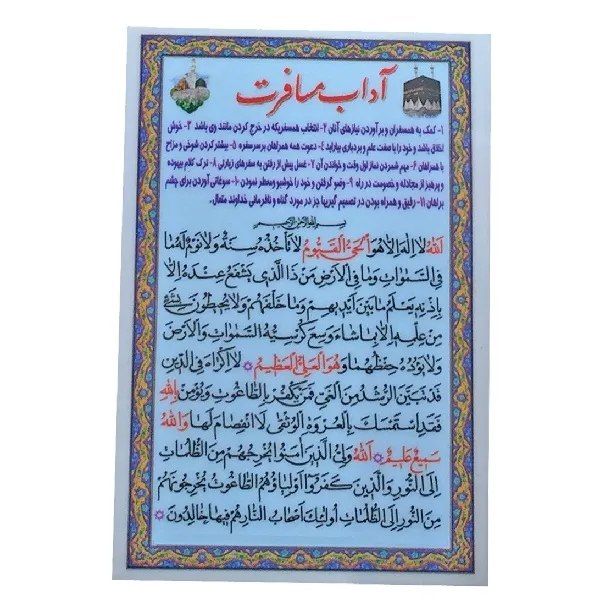 آداب مسافرت
۱- کمک به همسفران و برآوردن نیازهای آنان ۲- انتخاب همسفریکه در خرج کردن مانند وی باشد ۳- خوش
اخلاق باشد و خود را با صفت علم و بردباری بیاراید ٤- دعوت همه همراهان بر سر سفره ۵- بیشتر کردن شوخی و مزاح
با همراهان ۶- مهم شمردن نماز اول وقت و خواندن آن ۷- غسل پیش از رفتن به سفرهای زیارتی ۸- ترک کلام بیهوده
و پرهیز از مجادله و خصومت در راه ۹- وضو گرفتن و خود را خوشبو و معطر نمودن ۱۰- سوغاتی آوردن برای چشم
براهان ۱۱- رفیق و همراه بودن در تصمیم گیریها جز در مورد گناه و نافرمانی خداوند متعال.
بسم الله الرحمن الرحیم
اَللهُ لا اِلهَ اِلاّ هُوَ الْحَیُّ الْقَیُّومُ لا تَأْخُذُهُ سِنَةٌ وَلا نَوْمٌ لَهُ ما
فِی السَّمٰوٰاتِ وَما فِی الْاَرْضِ مَنْ ذَا الَّذی یَشْفَعُ عِنْدَهُ اِلاّ
بِاِذْنِهِ یَعْلَمُ ما بَیْنَ اَیْدیهِمْ وَما خَلْفَهُمْ وَلا یُحیطُونَ بِشَیْءٍ
مِنْ عِلْمِهِ اِلاّ بِما شاءَ وَسِعَ کُرْسِیُّهُ السَّمٰوٰاتِ وَالْاَرْضَ
وَلا یَؤُدُهُ حِفْظُهُما وَهُوَ الْعَلِیُّ الْعَظیمُ لا اِکْراهَ فِی الدّینِ
قَدْ تَبَیَّنَ الرُّشْدُ مِنَ الْغَیِّ فَمَنْ یَکْفُرْ بِالطّاغُوتِ وَیُؤْمِنْ بِاللهِ
فَقَدِ اسْتَمْسَکَ بِالْعُرْوَةِ الْوُثْقی لَا انْفِصامَ لَها وَاللهُ
سَمیعٌ عَلیمٌ اَللهُ وَلِیُّ الَّذینَ آمَنُوا یُخْرِجُهُمْ مِنَ الظُّلُماتِ
اِلَی النُّورِ وَالَّذینَ کَفَرُوا اَوْلِیاؤُهُمُ الطّاغُوتُ یُخْرِجُونَهُمْ
مِنَ النُّورِ اِلَی الظُّلُماتِ اُولئِکَ اَصْحابُ النّارِ هُمْ فیها خالِدُونَ